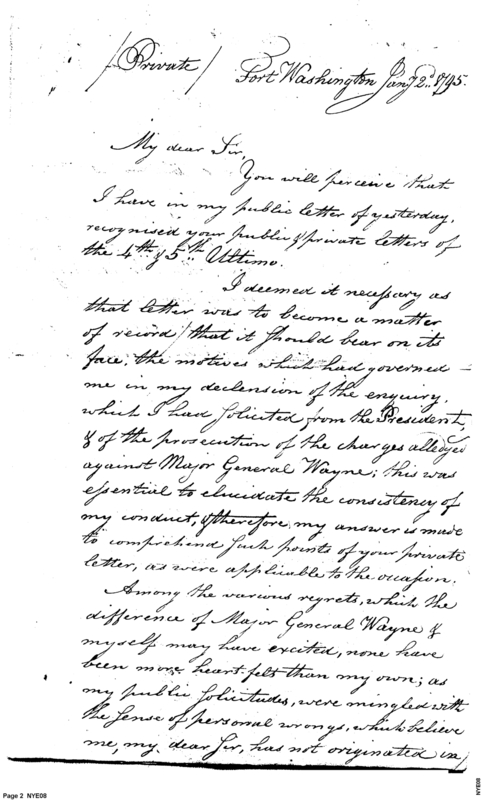 /Private/
Fort Washington Jany 2d. 1795.
My dear Sir,
You will perceive that
I have in my public letter of yesterday,
recognised your public & private letters of
the 4th & 5th Ultimo.
I deemed it necessary as
that letter was to become a matter
of record / that it should bear on its
face, the motives which had governed –
me in my declension of the enquiry,
which I had solicited from the President,
& of the prosecution of the charges alledged
against Major General Wayne; this was
essential to elucidate the consistency of
my conduct, & therefore, my answer is made
to comprehend such points of your private
letter, as were applicable to the occasion.
Among the various regrets, which the
difference of Major General Wayne &
myself may have excited, none have
been more heart felt than my own; as
my public solicitudes, were mingled with
the sense of personal wrongs, which believe
me, my dear Sir, has not originated in
Page 2 NYE08
NYE08